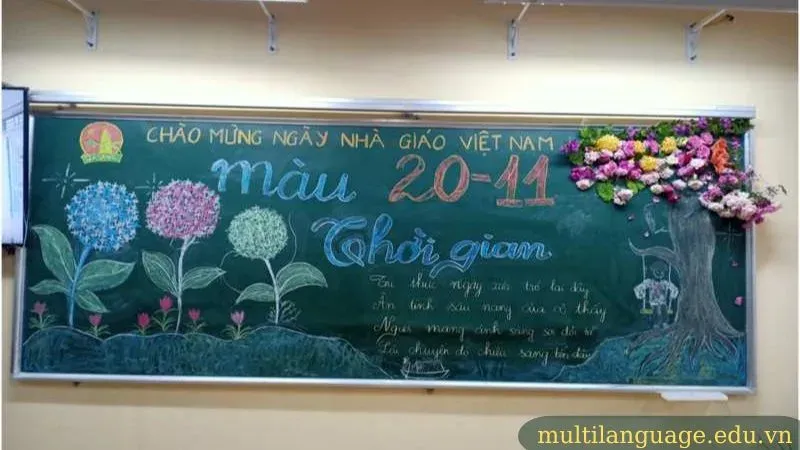 CHÀO MỪNG NGÀY NHÀ GIÁO VIỆT NAM
màu 20-11
Thời gian
Tri thức ngày xưa trở lại đây
Ân tình sâu nặng của cô thầy
Người mang ánh sáng soi đời
Lái chuyến đò chiều sang bến
multilanguage.edu.vn